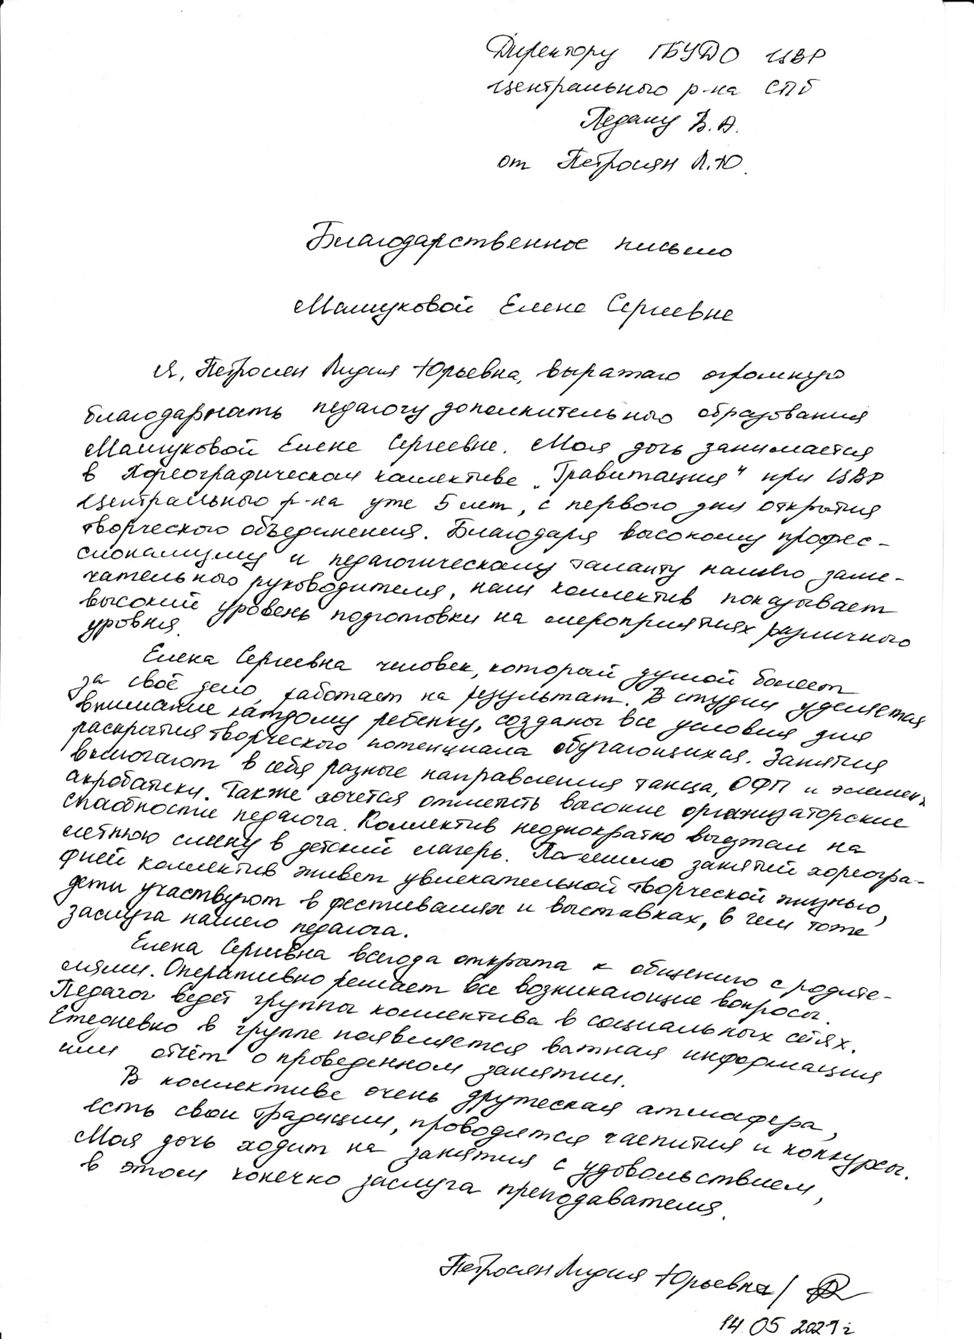 Директору ГБУДО ЦВР
Центрального р-на СПб
Педану В.А.
от Петросян Л.Ю.
Благодарственное письмо
Машуковой Елене Сергеевне
Я, Петросян Лидия Юрьевна, выражаю огромную
благодарность педагогу дополнительного образования
Машуковой Елене Сергеевне. Моя дочь занимается
в Хореографическом коллективе "Гравитация" при ЦВР
Центрального р-на уже 5 лет, с первого дня открытия
творческого объединения. Благодаря высокому профес-
сионализму и педагогическому таланту нашего заме-
чательного руководителя, наш коллектив показывает
высокий уровень подготовки на мероприятиях различного
уровня.
Елена Сергеевна человек, который душой болеет
за своё дело, работает на результат. В студии уделяется
внимание каждому ребенку, созданы все условия для
раскрытия творческого потенциала обучающихся. Занятия
включают в себя разные направления танца, ОФП и элемен
акробатики. Также хочется отметить высокие организаторские
способности педагога. Коллектив неоднократно выезжал на
летнюю смену в детский лагерь. Помимо занятий хореогра-
фией коллектив живет увлекательной творческой жизнью,
дети участвуют в фестивалях и выставках, в чем тоже
заслуга нашего педагога.
Елена Сергеевна всегда открыта к общению с родите-
лями. Оперативно решает все возникающие вопросы.
Педагог ведёт группы коллектива в социальных сетях.
Ежедневно в группе появляется важная информация
или отчёт о проведенном занятии.
В коллективе очень дружеская атмосфера,
есть свои традиции, проводятся чаепития и конкурсы.
Моя дочь ходит на занятия с удовольствием,
в этом конечно заслуга преподавателя.
Петросян Лидия Юрьевна/
14.05 2021 г